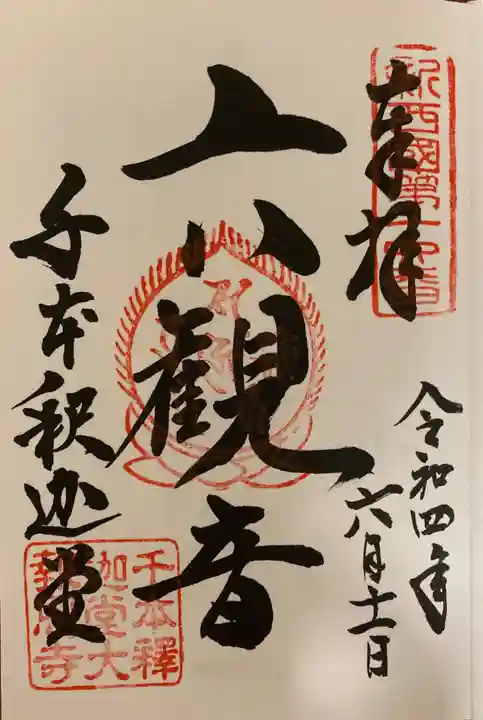 奉拝
新西國第十六番
令和四年
六月十一日
六観音
千本釈迦堂
千本釋
迦堂大
報恩寺